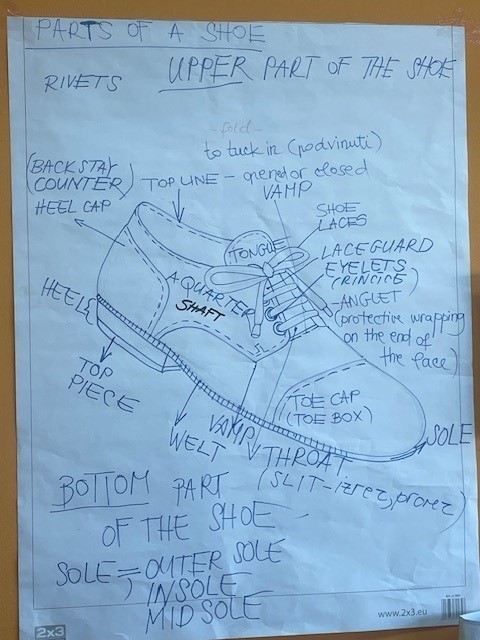 PARTS OF A SHOE
UPPER PART OF THE SHOE
RIVETS
- fold -
to tuck in (podvinuti)
(BACKSTAY
COUNTER)
HEEL CAP
TOP LINE - opened or closed
VAMP
SHOE
LACES
TONGUE
LACEGUARD
EYELETS
(RINČICE)
- ANGLET
(protective wrapping
on the end of
the lace)
A QUARTER
SHAFT
HEEL
TOP
PIECE
TOE CAP
(TOE BOX)
SOLE
WELT
VAMP
THROAT
(SLIT - izrez, prorez)
BOTTOM PART
OF THE SHOE
SOLE = OUTER SOLE
INSOLE
MIDSOLE
2x3
www.2x3.eu